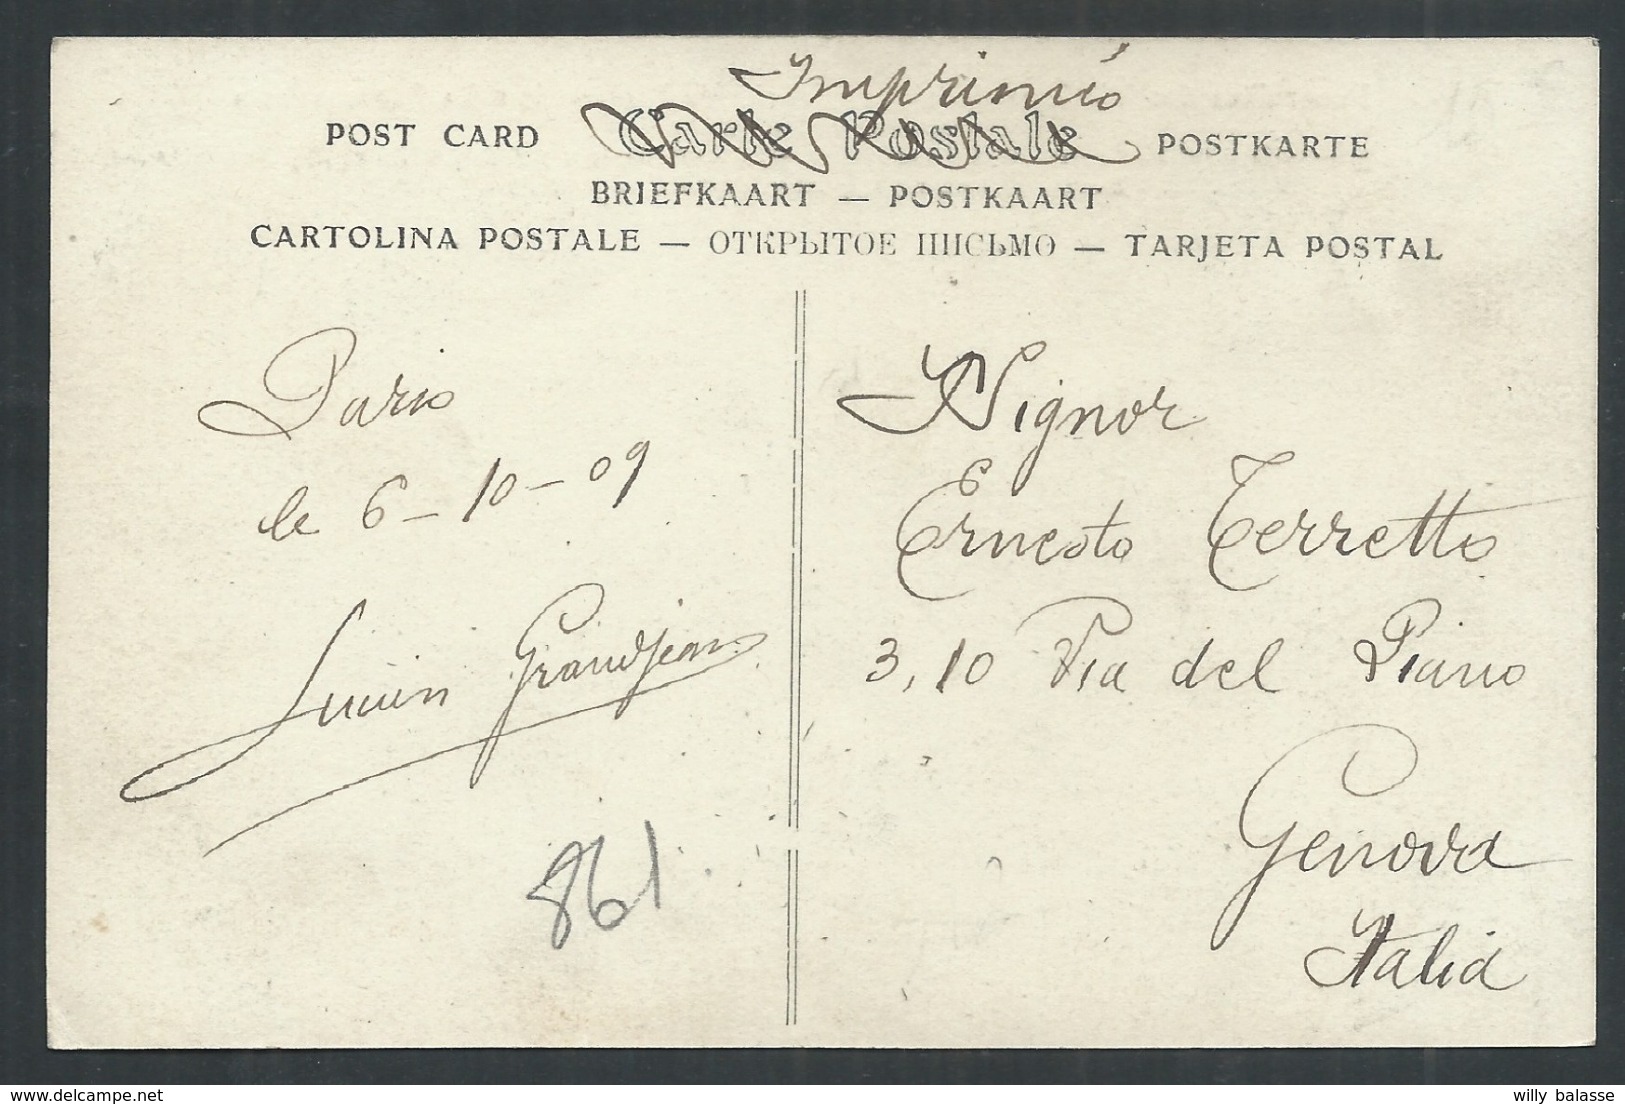 Imprimés
POST CARD Carte Postale POSTKARTE
BRIEFKAART — POSTKAART
CARTOLINA POSTALE — ОТКРЫТОЕ ПИСЬМО — TARJETA POSTAL
Paris
le 6-10-09
Lucien Grandjean
861
Signor
Ernesto Terretto
3,10 Via del Piano
Genova
Italia
willy balasse